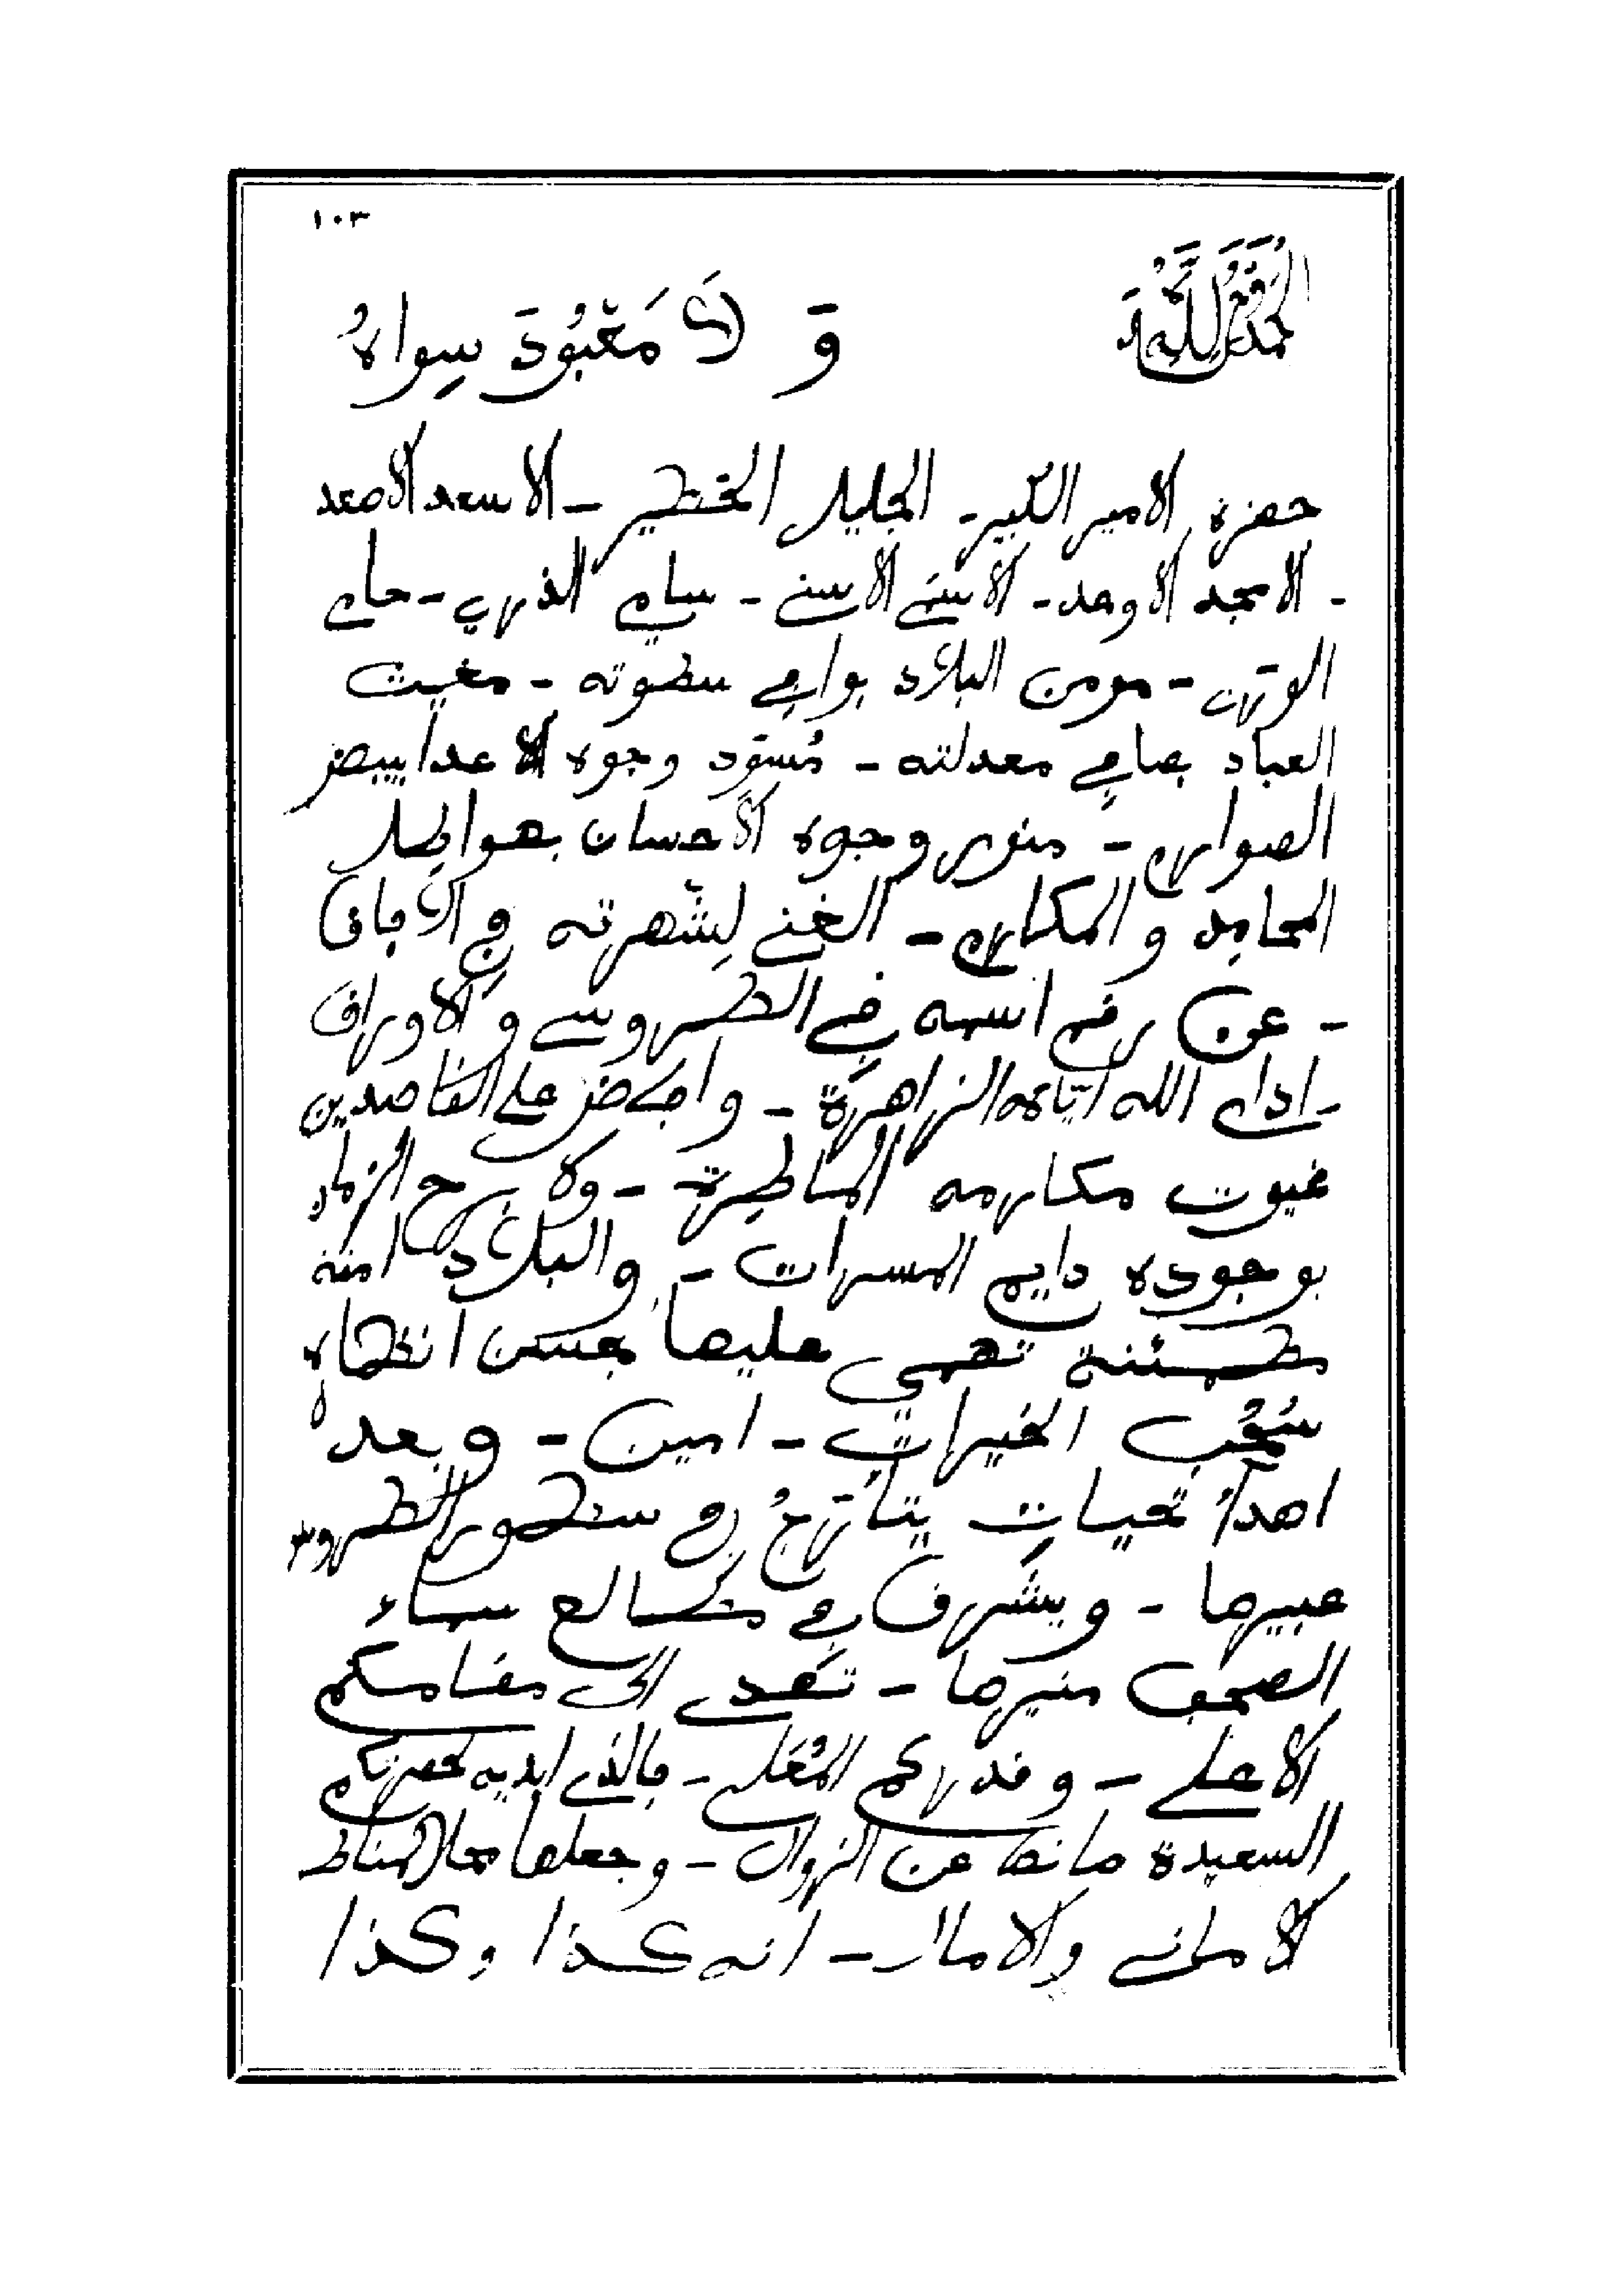 ١٠٣
الحمد لله وحده وَ لَا مَعْبُودَ سِواهُ
حضرة الامير الكبير - الجليل الخطير - الاسعد الاصعد
- الامجد الاوحد - الاسنى - سامي الذرى - حامي
- مومن البلاد بوامي سطوته - مغيث
العباد بصامي معدلته - مُسَوّد وجوه الاعدا ببيض
الصوارم - منور وجوه الاحسان بهواطل
المحامِد والمكارم - الغني لِشهرته في الافاق
- عن رقم اسمه في الطروس والاوراق
- ادام الله ايّامه الزاهرة - وافاض على القاصدين
غيوث مكارمه الماطِرة - ولا برح الزمان
بوجوده دايم المسرات - والبلاد امنة
مطمئنة تهمي عليها بحسن انظاره
سُحُب الخيرات - امين - وبعد
اهداء تحياتٍ يتأرّجُ في سطور الطروس
عبيرها - ويشرق في مطالع سماء
الصحف منيرها - تهدى الى مقامكم
الاعلى - وقدركم المُعَلى - فالذي ابديه لحضرتكم
السعيدة صانها عن الزوال - وجعلها محلا لمناط
الاماني والامال - انه كذا وكذا